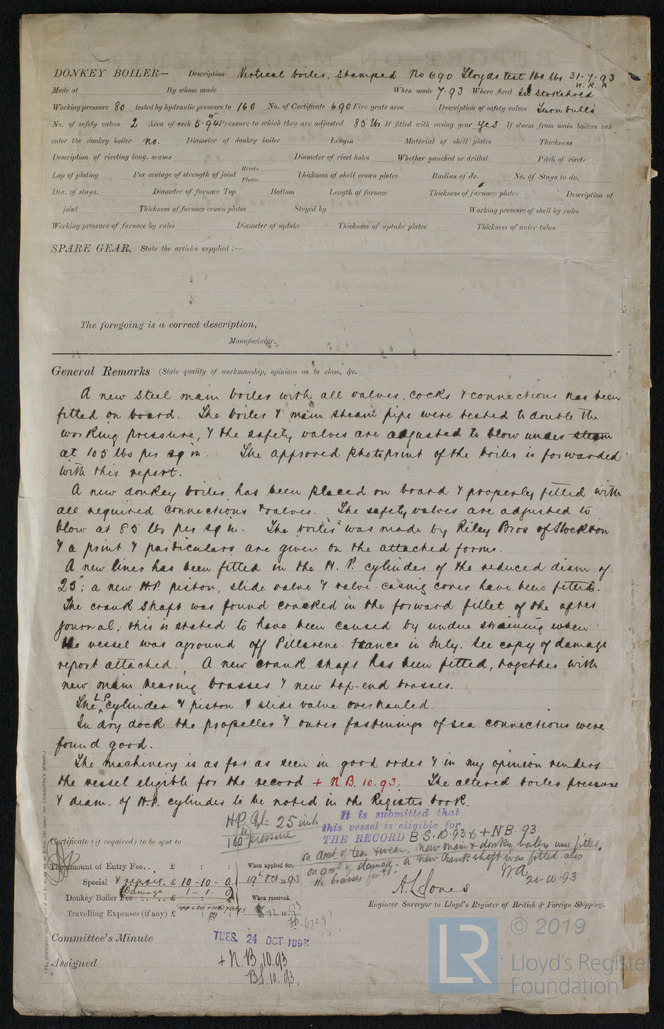 DONKEY BOILER— Description Vertical boiler. Stamped No 690 Lloyds test 160 lbs 31-7-93
W.R.A
Made at By whom made When made 7-93 Where fixed In Stokehold
Working pressure 80 tested by hydraulic pressure to 160 No. of Certificate 690 Fire grate area Description of safety valves Turnbulls
No. of safety valves 2 Area of each 5.94 Pressure to which they are adjusted 85 lbs If fitted with easing gear yes If steam from main boilers can
enter the donkey boiler no. Diameter of donkey boiler Length Material of shell plates Thickness
Description of riveting long. seams Diameter of rivet holes Whether punched or drilled Pitch of rivets
Lap of plating Per centage of strength of joint Rivets Plates Thickness of shell crown plates Radius of do. No. of Stays to do.
Dia. of stays. Diameter of furnace Top Bottom Length of furnace Thickness of furnace plates Description of
joint Thickness of furnace crown plates Stayed by Working pressure of shell by rules
Working pressure of furnace by rules Diameter of uptake Thickness of uptake plates Thickness of water tubes
SPARE GEAR. State the articles supplied :—
The foregoing is a correct description,
Manufacturer.
General Remarks (State quality of workmanship, opinions as to class, &c.
A new steel main boiler with all valves, cocks & connections has been
fitted on board. The boiler & main steam pipe were tested to double the
working pressure, & the safety valves are adjusted to blow under steam
at 105 lbs per sq in. The approved photoprint of the boiler is forwarded
with this report.
A new donkey boiler has been placed on board & properly fitted with
all required connections & valves. The safety valves are adjusted to
blow at 85 lbs per sq in. The boiler was made by Riley Bros of Stockton
& a print & particulars are given on the attached forms.
A new liner has been fitted in the H.P. cylinder of the reduced diam of
25"; a new HP piston, slide valve & valve casing cover have been fitted.
The crank shaft was found cracked in the forward fillet of the after
journal; this is stated to have been caused by undue straining when
the vessel was aground off France in July. See copy of damage
report attached. A new crank shaft has been fitted, together with
new main bearing brasses & new top-end brasses.
The LP cylinder & piston & slide valve overhauled.
In dry dock the propeller & outer fastenings of sea connections were
found good.
The machinery is as far as seen in good order & in my opinion renders
the vessel eligible for the record + N.B. 10.93. The altered boiler pressure
& diam. of H.P. cylinder to be noted in the Register book.
H.P. Cyl 25 inch
160 pressure
It is submitted that
this vessel is eligible for
THE RECORD B.S. 10.93 & + NB. 93
on acct of tear & wear. New main & donkey boilers were fitted,
on acct of damage: a new crank shaft was fitted also
24-10-93
Certificate (if required) to be sent to
The amount of Entry Fee.. £ : : When applied for,
Special repairs £ 10-10-0 19th Oct 1893
Damage 1-1-0
Donkey Boiler Fee £ : : When received,
Travelling Expenses (if any) £ : :
A.L. Jones
Engineer Surveyor to Lloyd's Register of British & Foreign Shipping.
Committee's Minute TUES. 24 OCT 1893
Assigned + N.B. 10.93
BS. 10.93.
© 2019
LR
Lloyd's Register
Foundation